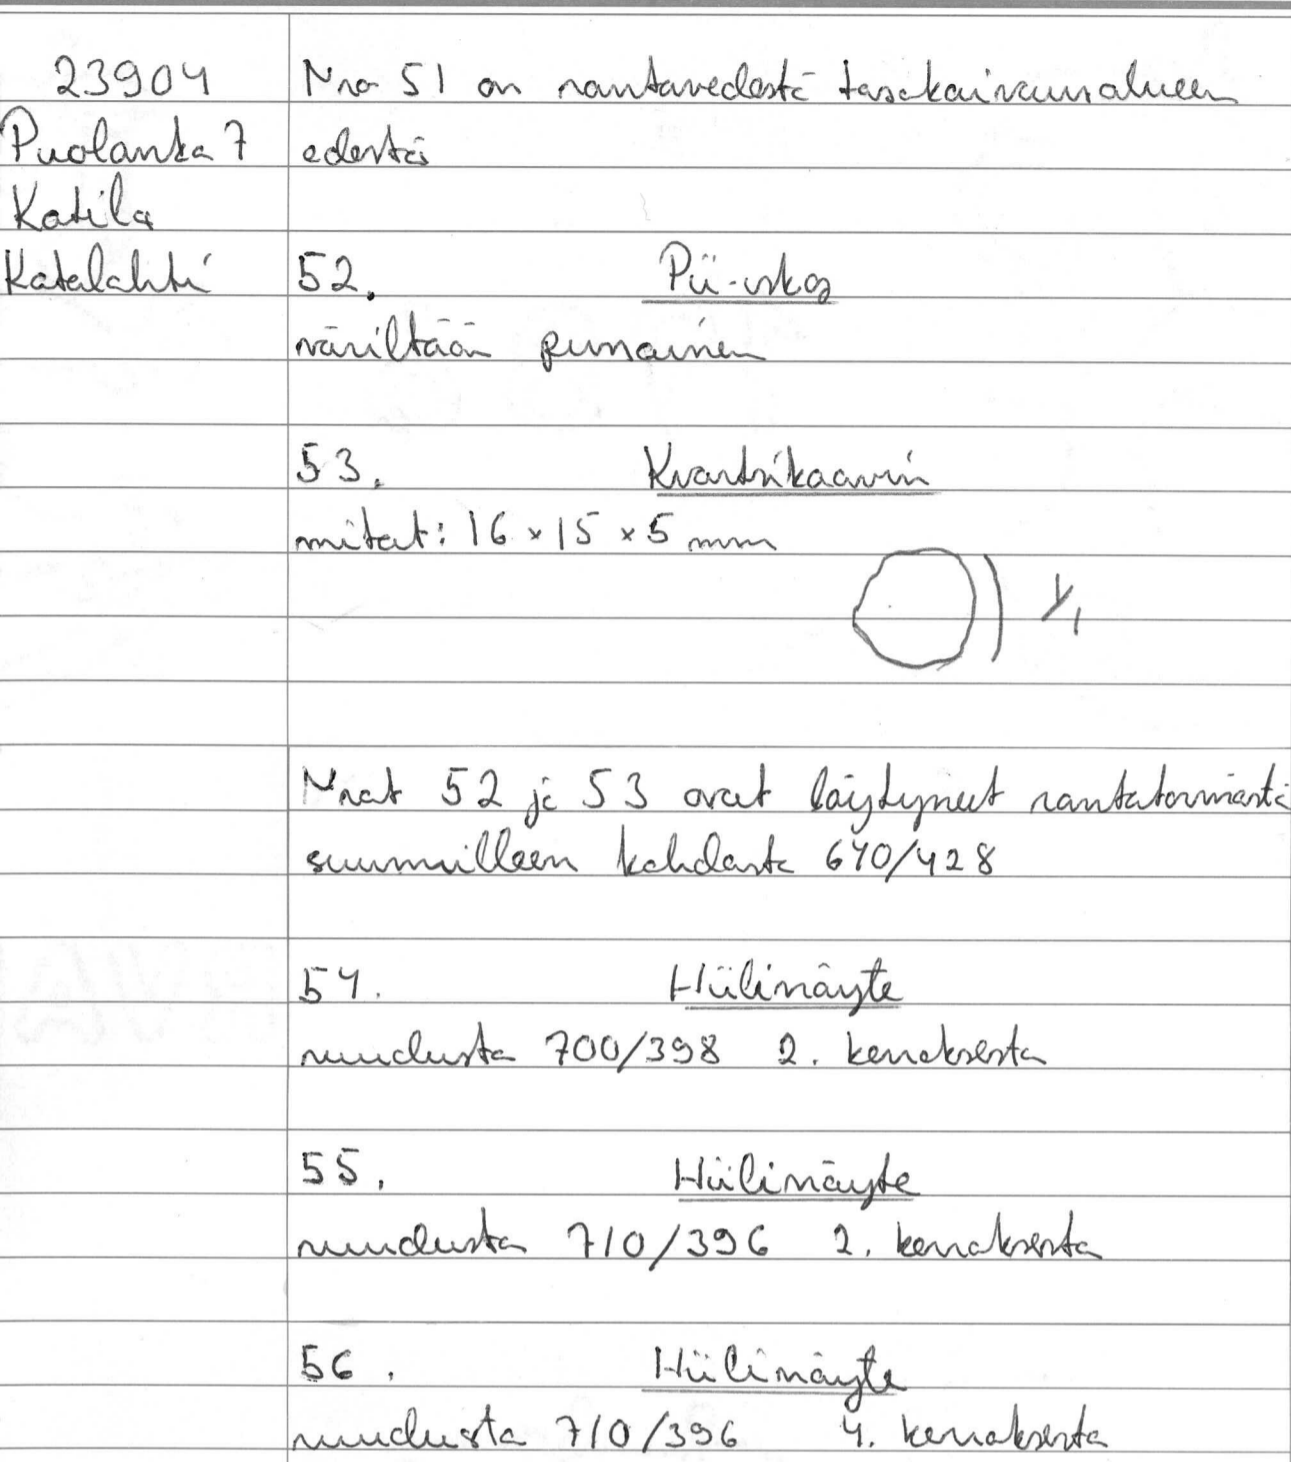 23904
Puolanka 7
Katila
Katalahti
Nro 51 on rantavedestä tasokaivausalueen
edestä
52. Pii-iskos
väriltään punainen
53. Kvartsikaavin
mitat: 16 x 15 x 5 mm
1/1
Nrot 52 ja 53 ovat löytyneet rantatörmästä
suunnilleen kohdasta 640/428
54. Hiilinäyte
ruudusta 700/398 2. kerroksesta
55. Hiilinäyte
ruudusta 710/396 2. kerroksesta
56. Hiilinäyte
ruudusta 710/396 4. kerroksesta